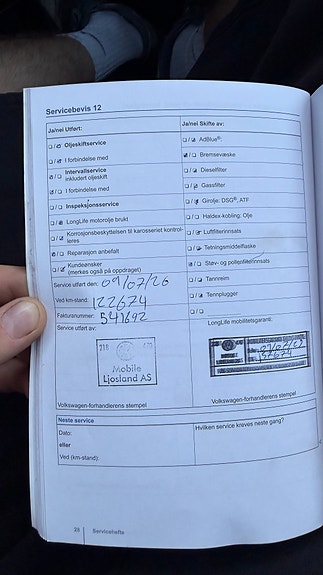 Servicebevis 12
Ja/nei Utført:
Ja/nei Skifte av:
Oljeskiftservice
AdBlue®
I forbindelse med
Bremsevæske
Intervallservice
inkludert oljeskift
Dieselfilter
I forbindelse med
Gassfilter
Inspeksjonsservice
Girolje: DSG®, ATF
LongLife motorolje brukt
Haldex-kobling: Olje
Korrosjonsbeskyttelsen til karosseriet kontrol-
leres
Luftfilterinnsats
Reparasjon anbefalt
Tetningsmiddelflaske
Kundeønsker
(merkes også på oppdraget)
Støv- og pollenfilterinnsats
Service utført den: 09/07/26
Tannreim
Ved km-stand: 122674
Tennplugger
Fakturanummer: 541692
Service utført av:
LongLife mobilitetsgaranti:
Mobile
Ljosland AS
Volkswagen-forhandlerens stempel
Volkswagen-forhandlerens stempel
Neste service
Hvilken service kreves neste gang?
Dato:
eller
Ved (km-stand):
28 Servicehefte